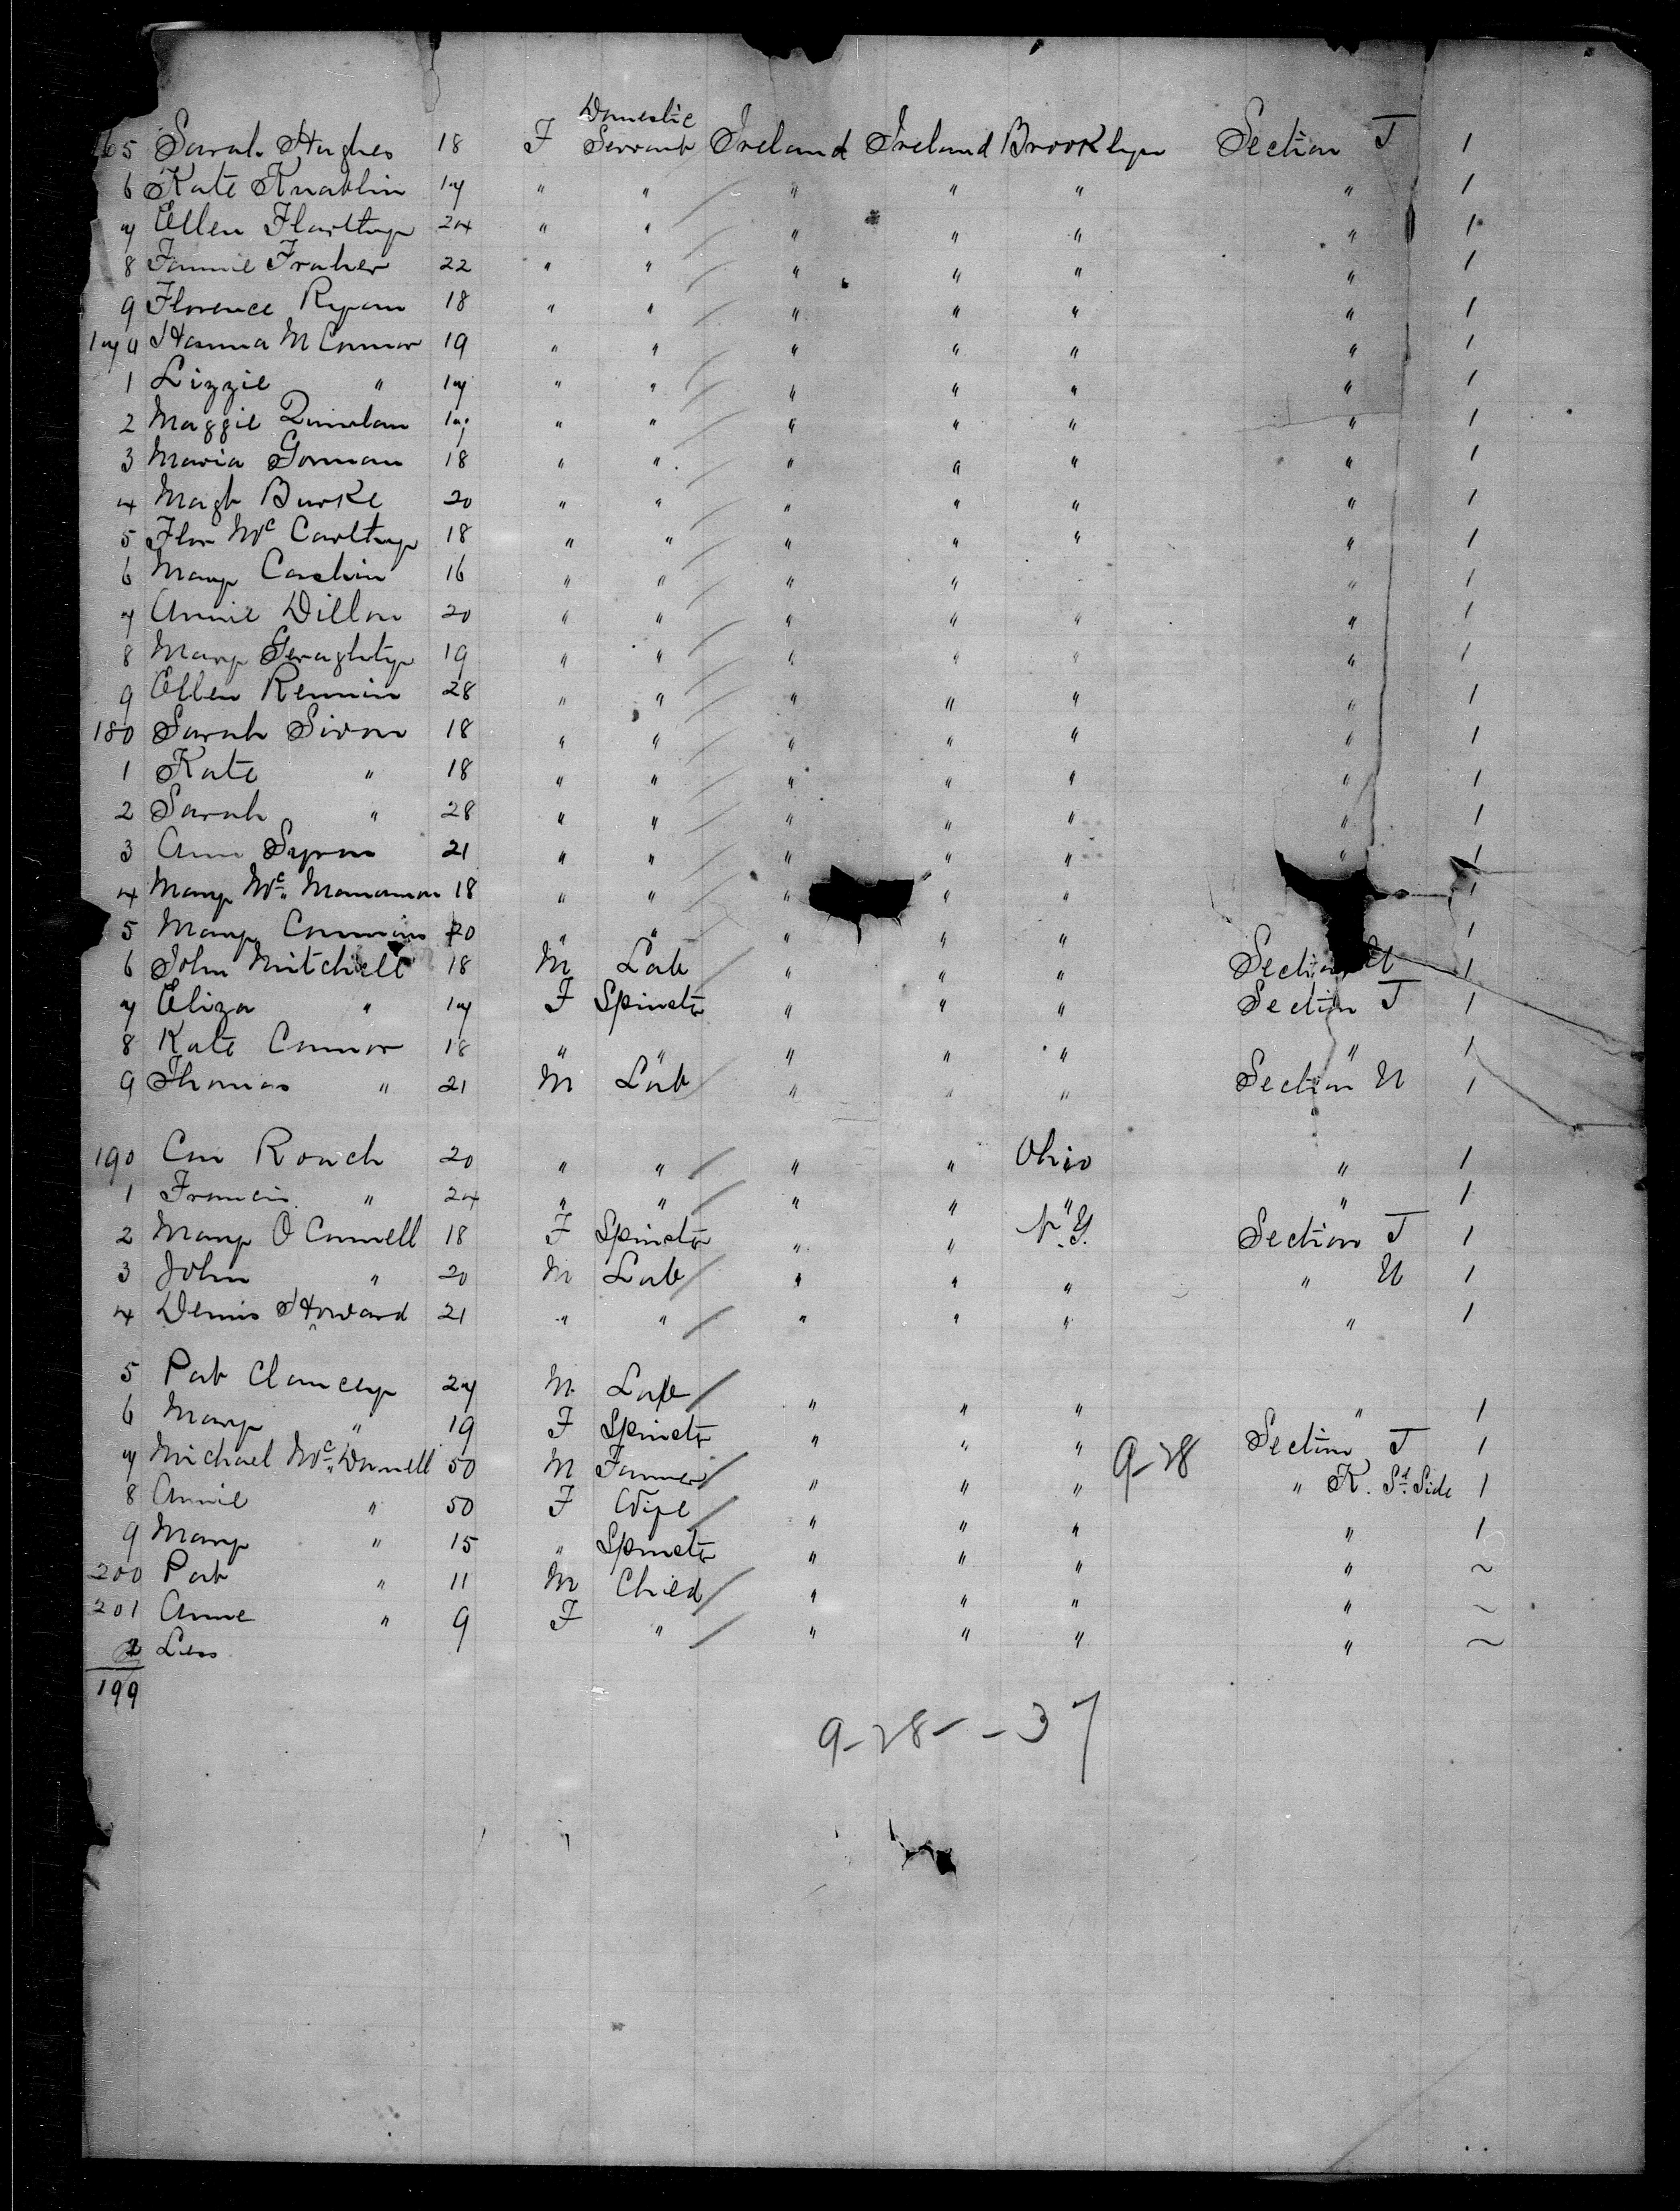 165 Sarah Hughes 18 F Domestic Servant Ireland Ireland Brooklyn Section J 1
6 Kate Knablin 17 " " " " " " 1
7 Ellen Flarthy 24 " " " " " " 1
8 Fannie Fraher 22 " " " " " " 1
9 Florence Ryan 18 " " " " " " 1
170 Hanna M Connor 19 " " " " " " 1
1 Lizzie " 17 " " " " " " 1
2 Maggie Quinlan 17 " " " " " " 1
3 Maria Gorman 18 " " " " " " 1
4 Magt Burke 20 " " " " " " 1
5 Flor Mc Carthy 18 " " " " " " 1
6 Mary Cashin 16 " " " " " 1
7 Annie Dillon 20 " " " " " " 1
8 Mary Geraghty 19 " " " " " " 1
9 Ellen Rennin 28 " " " " " " 1
180 Sarah Siron 18 " " " " " " 1
1 Kate " 18 " " " " " " 1
2 Sarah " 28 " " " " " " 1
3 Ann Syron 21 " " " " " " 1
4 Mary Mc Manamon 18 " " " " " 1
5 Mary 20 " " " " " 1
6 John Mitchell 18 M Lab " " " Section U 1
7 Eliza " 17 F Spinstr " " " Section J 1
8 Kate Connor 18 " " " " " " 1
9 Thomas " 21 M Lab " " " Section U 1
190 Con Roach 20 " " " " Ohio " 1
1 Francis " 24 " " " " " " 1
2 Mary O Connell 18 F Spinstr " " N.Y. Section J 1
3 John " 20 M Lab " " " " U 1
4 Denis Howard 21 " " " " " " 1
5 Pat Clancey 27 M Lab " " " " 1
6 Mary " 19 F Spinstr " " " Section J 1
7 Michael Mc Donnell 50 M Farmer " " " 9-28 " K. Sd. Side 1
8 Annie " 50 F Wife " " " " 1
9 Mary " 15 " Spinstr " " " " ~
200 Pat " 11 M Child " " " " ~
201 Anne " 9 F " " " " " ~
2 Less
199
9-28--37